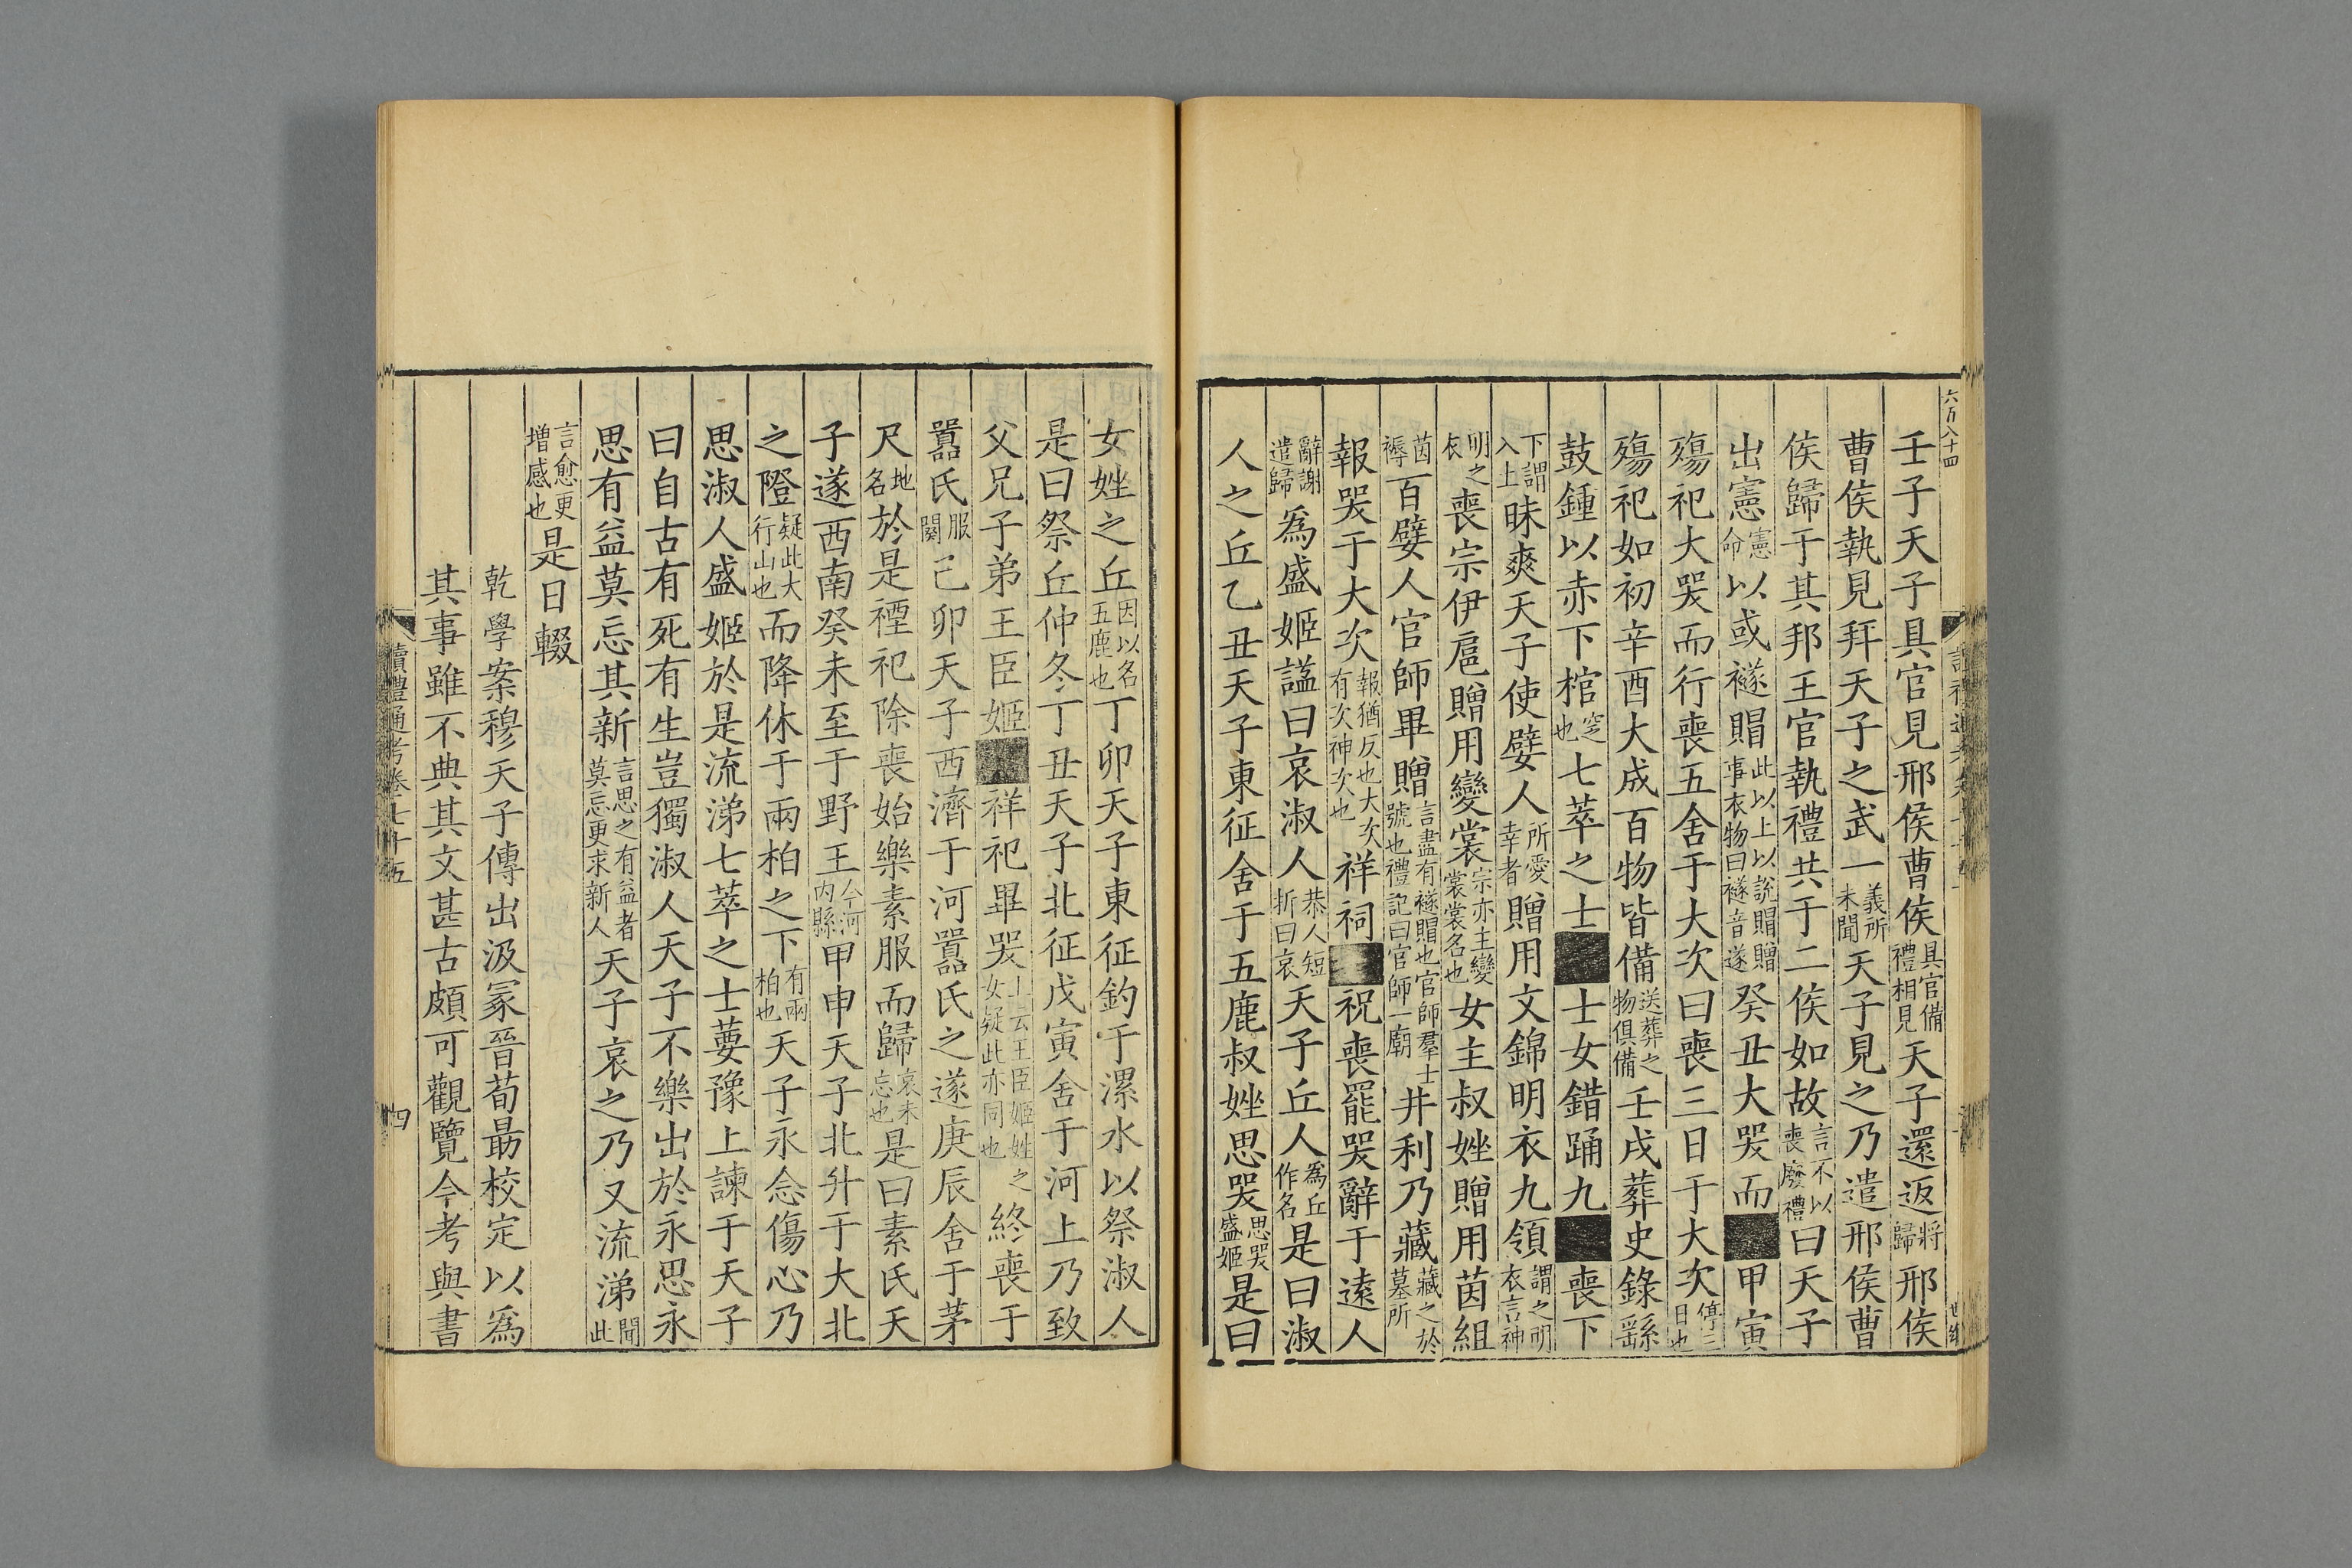 六百八十四
壬子天子具官見邢侯曹侯具官備禮相見天子還返將歸邢侯
曹侯執見拜天子之武一義所未聞天子見之乃遣邢侯曹
侯歸于其邦王官執禮共于二侯如故言不以喪廢禮曰天子
出憲憲命以或襚賵此以上以說賵贈事衣物曰襚音遂癸丑大哭而■甲寅
殤祀大哭而行喪五舍于大次曰喪三日于大次停三日也
殤祀如初辛酉大成百物皆備送葬之物俱備壬戌葬史錄繇
鼓鍾以赤下棺窆也七萃之士■士女錯踊九■喪下
下謂入上昧爽天子使嬖人所愛幸者贈用文錦明衣九領謂之明衣言神
明之衣喪宗伊扈贈用變裳宗亦主變裳裳名也女主叔㛗贈用茵組
茵褥百嬖人官師畢贈言盡有襚賵也官師羣士號也禮記曰官師一廟井利乃藏藏之於墓所
報哭于大次報猶反也大次有次神次也祥祠■祝喪罷哭辭于遠人
辭謝遣歸爲盛姬謚曰哀淑人恭人短折曰哀天子丘人爲丘作名是曰淑
人之丘乙丑天子東征舍于五鹿叔㛗思哭思哭盛姬是曰
女姓之丘因以名五鹿也丁卯天子東征釣于漯水以祭淑人
是曰祭丘仲冬丁丑天子北征戊寅舍于河上乃致
父兄子弟王臣姬■祥祀畢哭上云王臣姬姓之女疑此亦同也終喪于
囂氏服闋己卯天子西濟于河囂氏之遂庚辰舍于茅
尺地名於是禋祀除喪始樂素服而歸哀未忘也是曰素氏天
子遂西南癸未至于野王今河内縣甲申天子北升于大北
之隥疑此大行山也而降休于兩柏之下有兩柏也天子永念傷心乃
思淑人盛姬於是流涕七萃之士葽豫上諫于天子
曰自古有死有生豈獨淑人天子不樂出於永思永
思有益莫忘其新言思之有益者莫忘更求新人天子哀之乃又流涕聞此
言愈更增感也是日輟
乾學案穆天子傳出汲冢晉荀勗校定以爲
其事雖不典其文甚古頗可觀覽今考與書
讀禮通考卷七十五
四